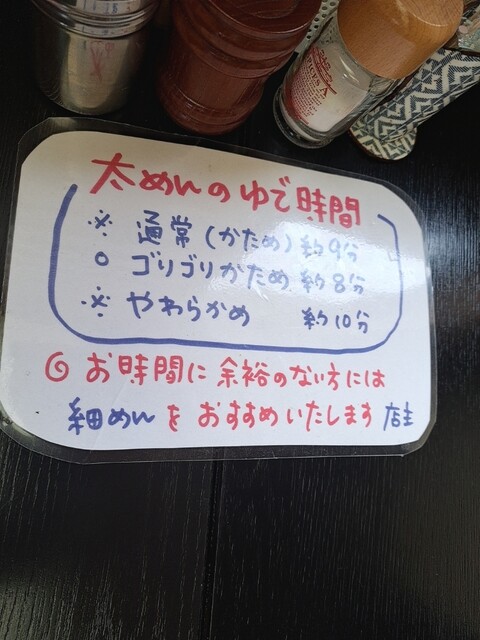 太めんのゆで時間
※ 通常(かため)約9分
○ ゴリゴリかため 約8分
※ やわらかめ 約10分
◎ お時間に余裕のない方には
細めんをおすすめいたします 店主